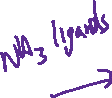 NH3 ligands